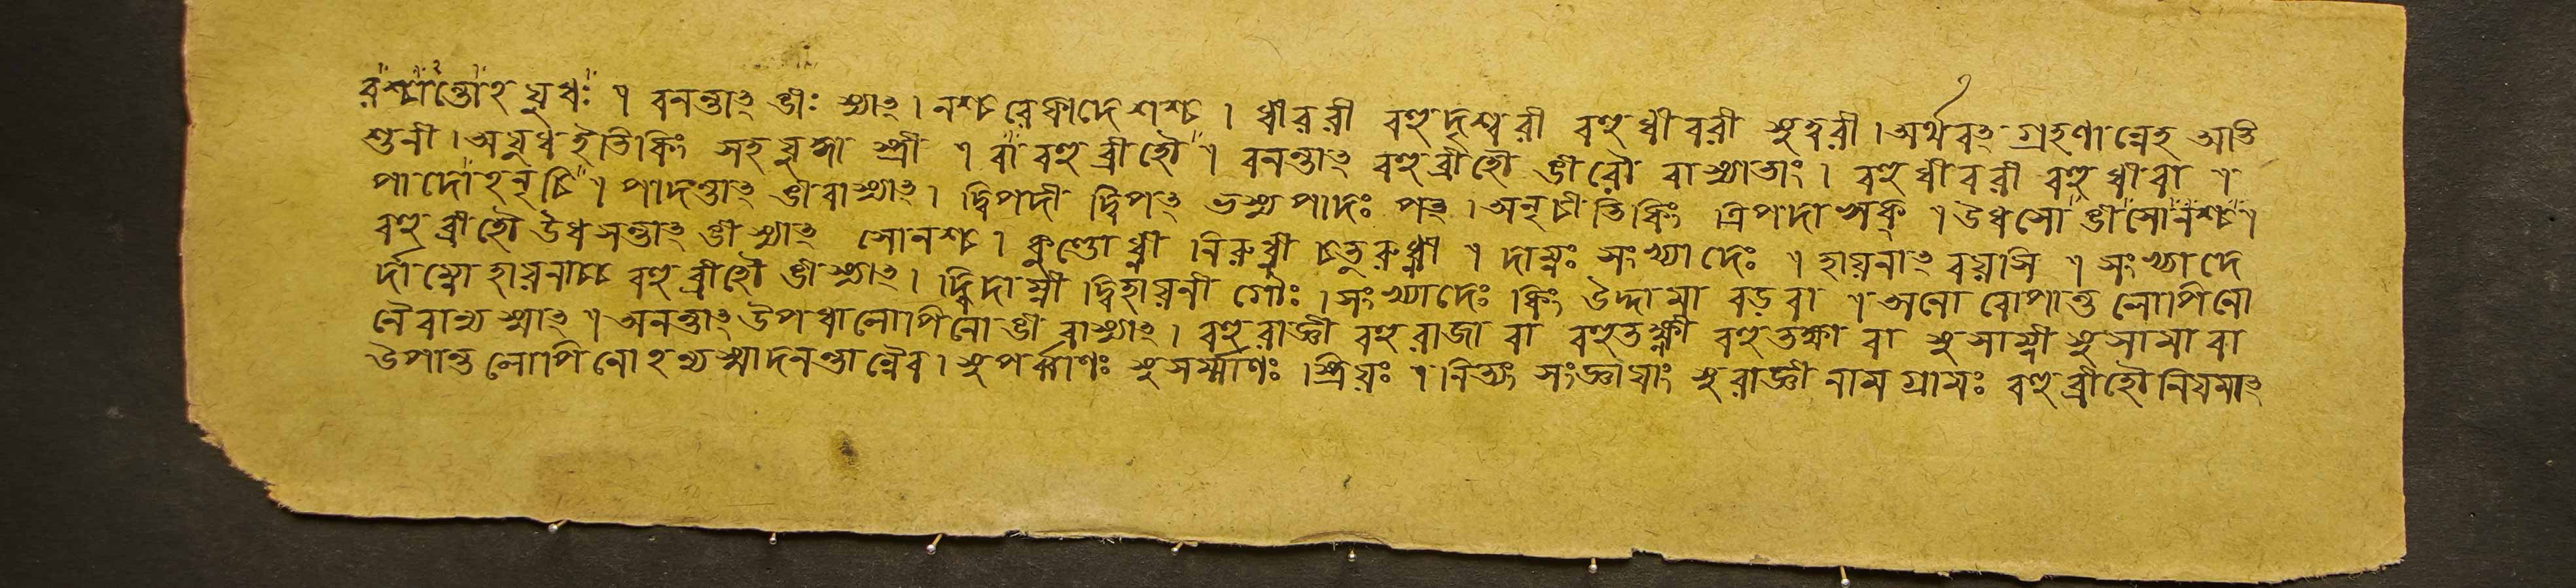 রশ্চান্তোঽযুধঃ । বনন্তাৎ ঙীঃ স্যাৎ । নশ্চ রেফাদেশশ্চ । ধীবরী বহুদৃশ্বরী বহুধীবরী সুত্বরী । অর্থবৎ গ্রহণান্নেহ অতি
শুনী । অযুধ ইতি কিং সহযুধ্বা স্ত্রী । বা বহুব্রীহৌ । বনন্তাৎ বহুব্রীহৌ ঙীরৌ বা স্যাতাং । বহুধীবরী বহুধীবা ।
পাদোঽনৃচি । পাদন্তাৎ ঙী বা স্যাৎ । দ্বিপদী দ্বিপাৎ ভস্য পাদঃ পৎ । অনৃচীতি কিং ত্রিপদা ঋক্ । উধসো ঙীসোনশ্চ ।
বহুব্রীহৌ উধসন্তাৎ ঙী স্যাৎ সোনশ্চ । কুণ্ডোধ্নী নিরুধ্নী চতুরুধ্নী । দাম্নঃ সংখ্যাদেঃ । হায়নাৎ বয়সি । সংখ্যাদে
র্দাম্নো হায়নাচ্চ বহুব্রীহৌ ঙী স্যাৎ । দ্বিদাম্নী দ্বিহায়নী গৌঃ । সংখ্যাদেঃ কিং উদ্দামা বড়বা । অনো বোপান্ত লোপিনো
নৈবান্য স্মাৎ । অনন্তাৎ উপধালোপিনো ঙী বা স্যাৎ । বহুরাজ্ঞী বহুরাজা বা বহুতক্ষ্ণী বহুতক্ষা বা সুসাম্নী সুসামা বা
উপান্ত লোপিনোঽন্য স্মাদনন্তান্নৈব । সুপর্ব্বাণঃ সুসর্ম্মাণঃ স্ত্রিয়ঃ । নিত্যং সংজ্ঞায়াং সুরাজ্ঞী নাম গ্রামঃ বহুব্রীহৌ নিয়মাৎ